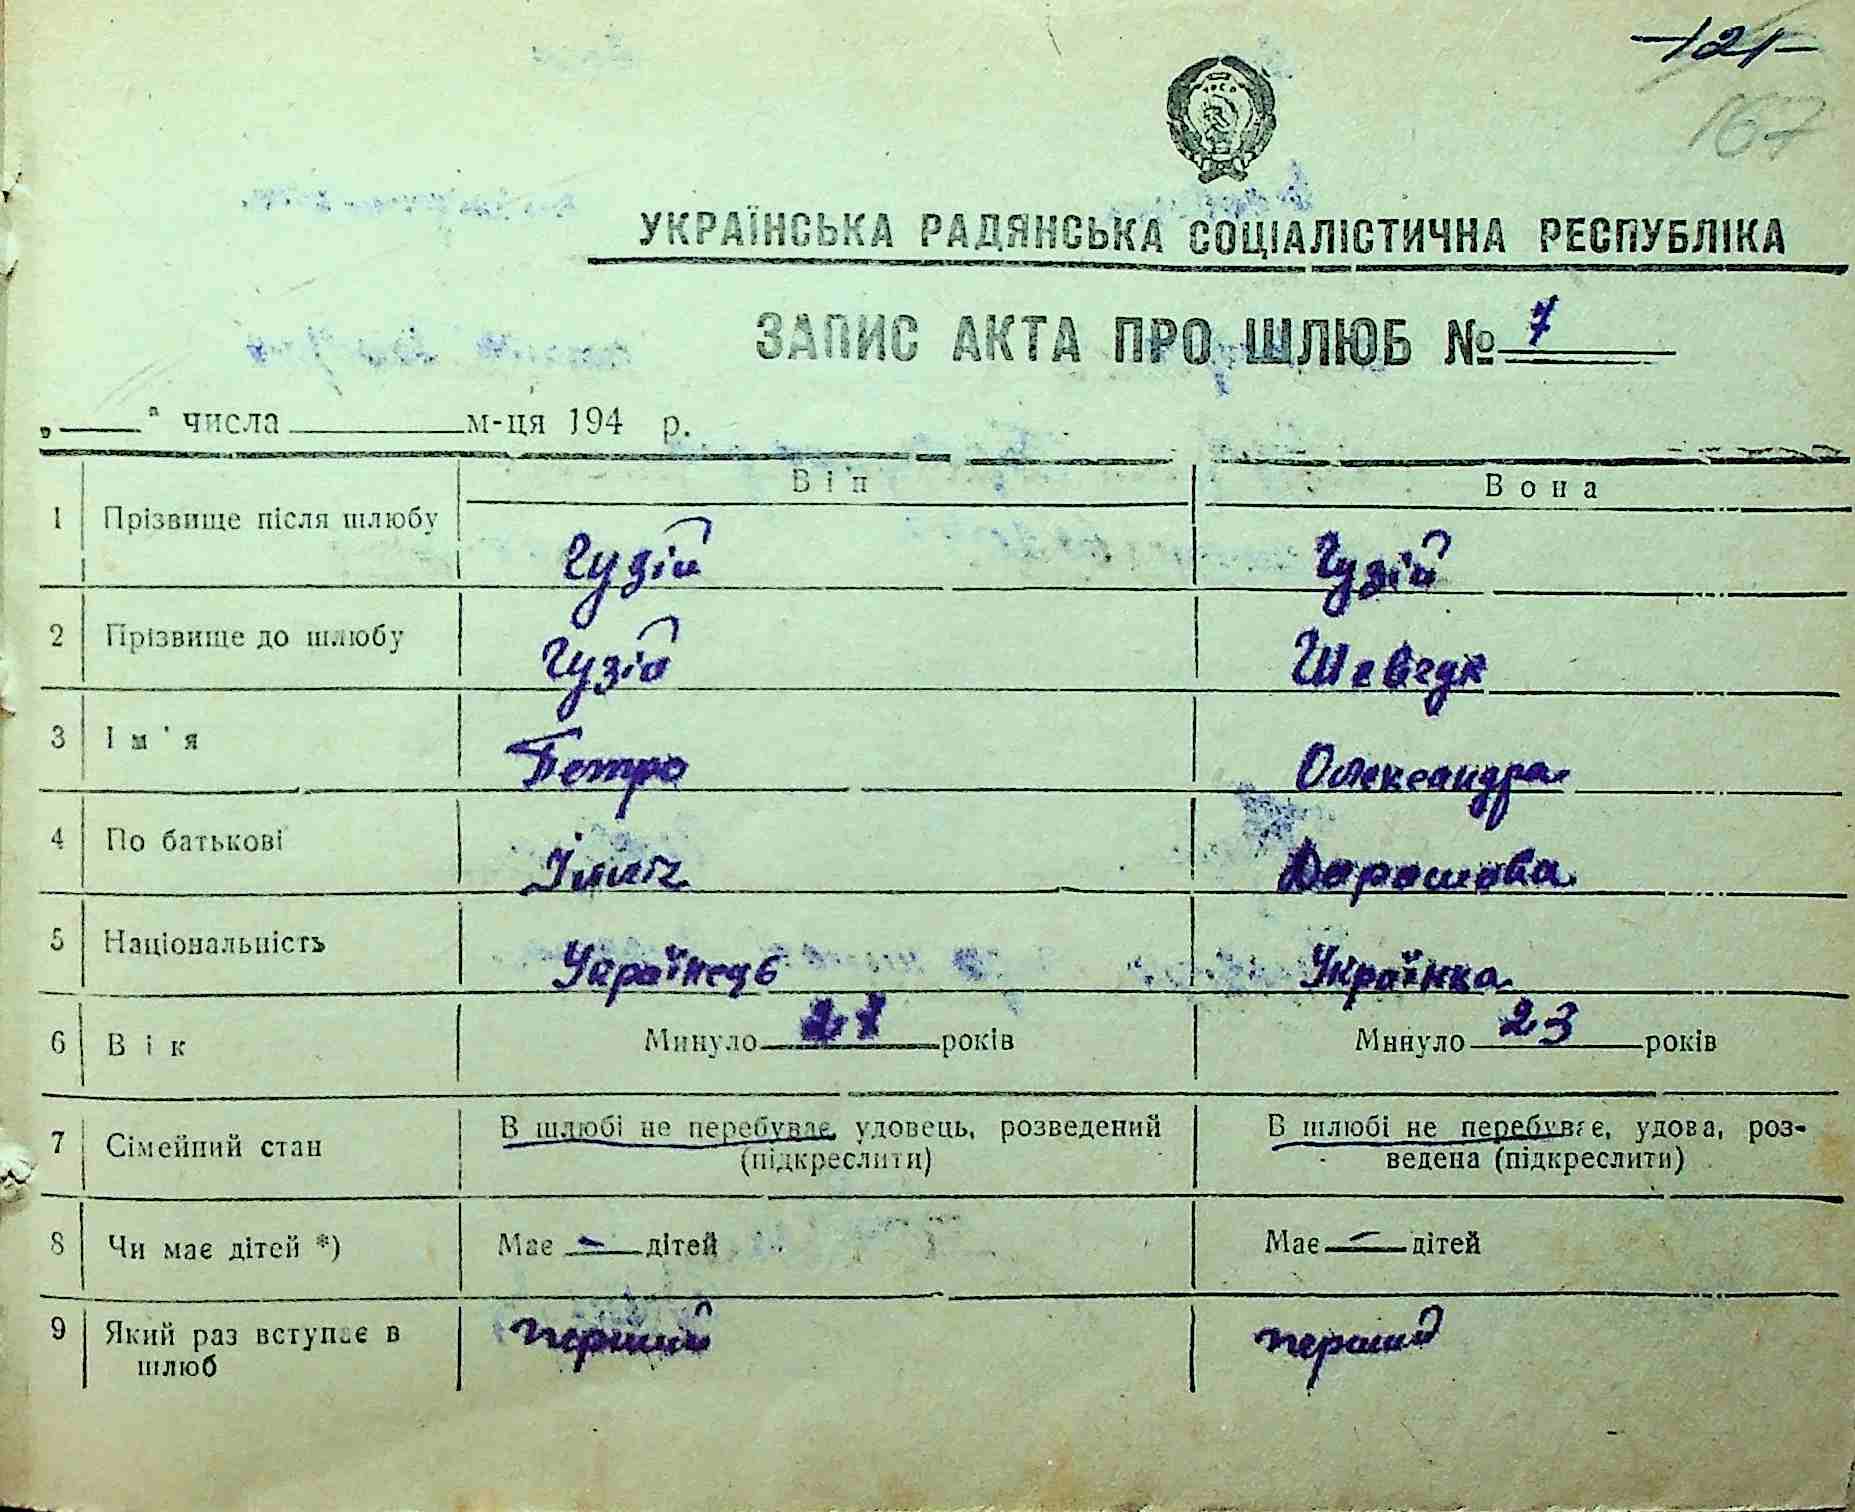 -121-
167
УКРАЇНСЬКА РАДЯНСЬКА СОЦІАЛІСТИЧНА РЕСПУБЛІКА
ЗАПИС АКТА ПРО ШЛЮБ № 7
„ " числа м-ця 194 р.
Він Вона
1 Прізвище після шлюбу Гузій Гузій
2 Прізвище до шлюбу Гузій
3 Ім'я Петро Олександра
4 По батькові Ілліч Дорошова
5 Національність Українець Українка
6 Вік Минуло років Минуло 23 років
7 Сімейний стан В шлюбі не перебуває, удовець, розведений В шлюбі не перебуває, удова, роз-
(підкреслити) ведена (підкреслити)
8 Чи має дітей *) Має — дітей Має — дітей
9 Який раз вступає в перший перший
шлюб